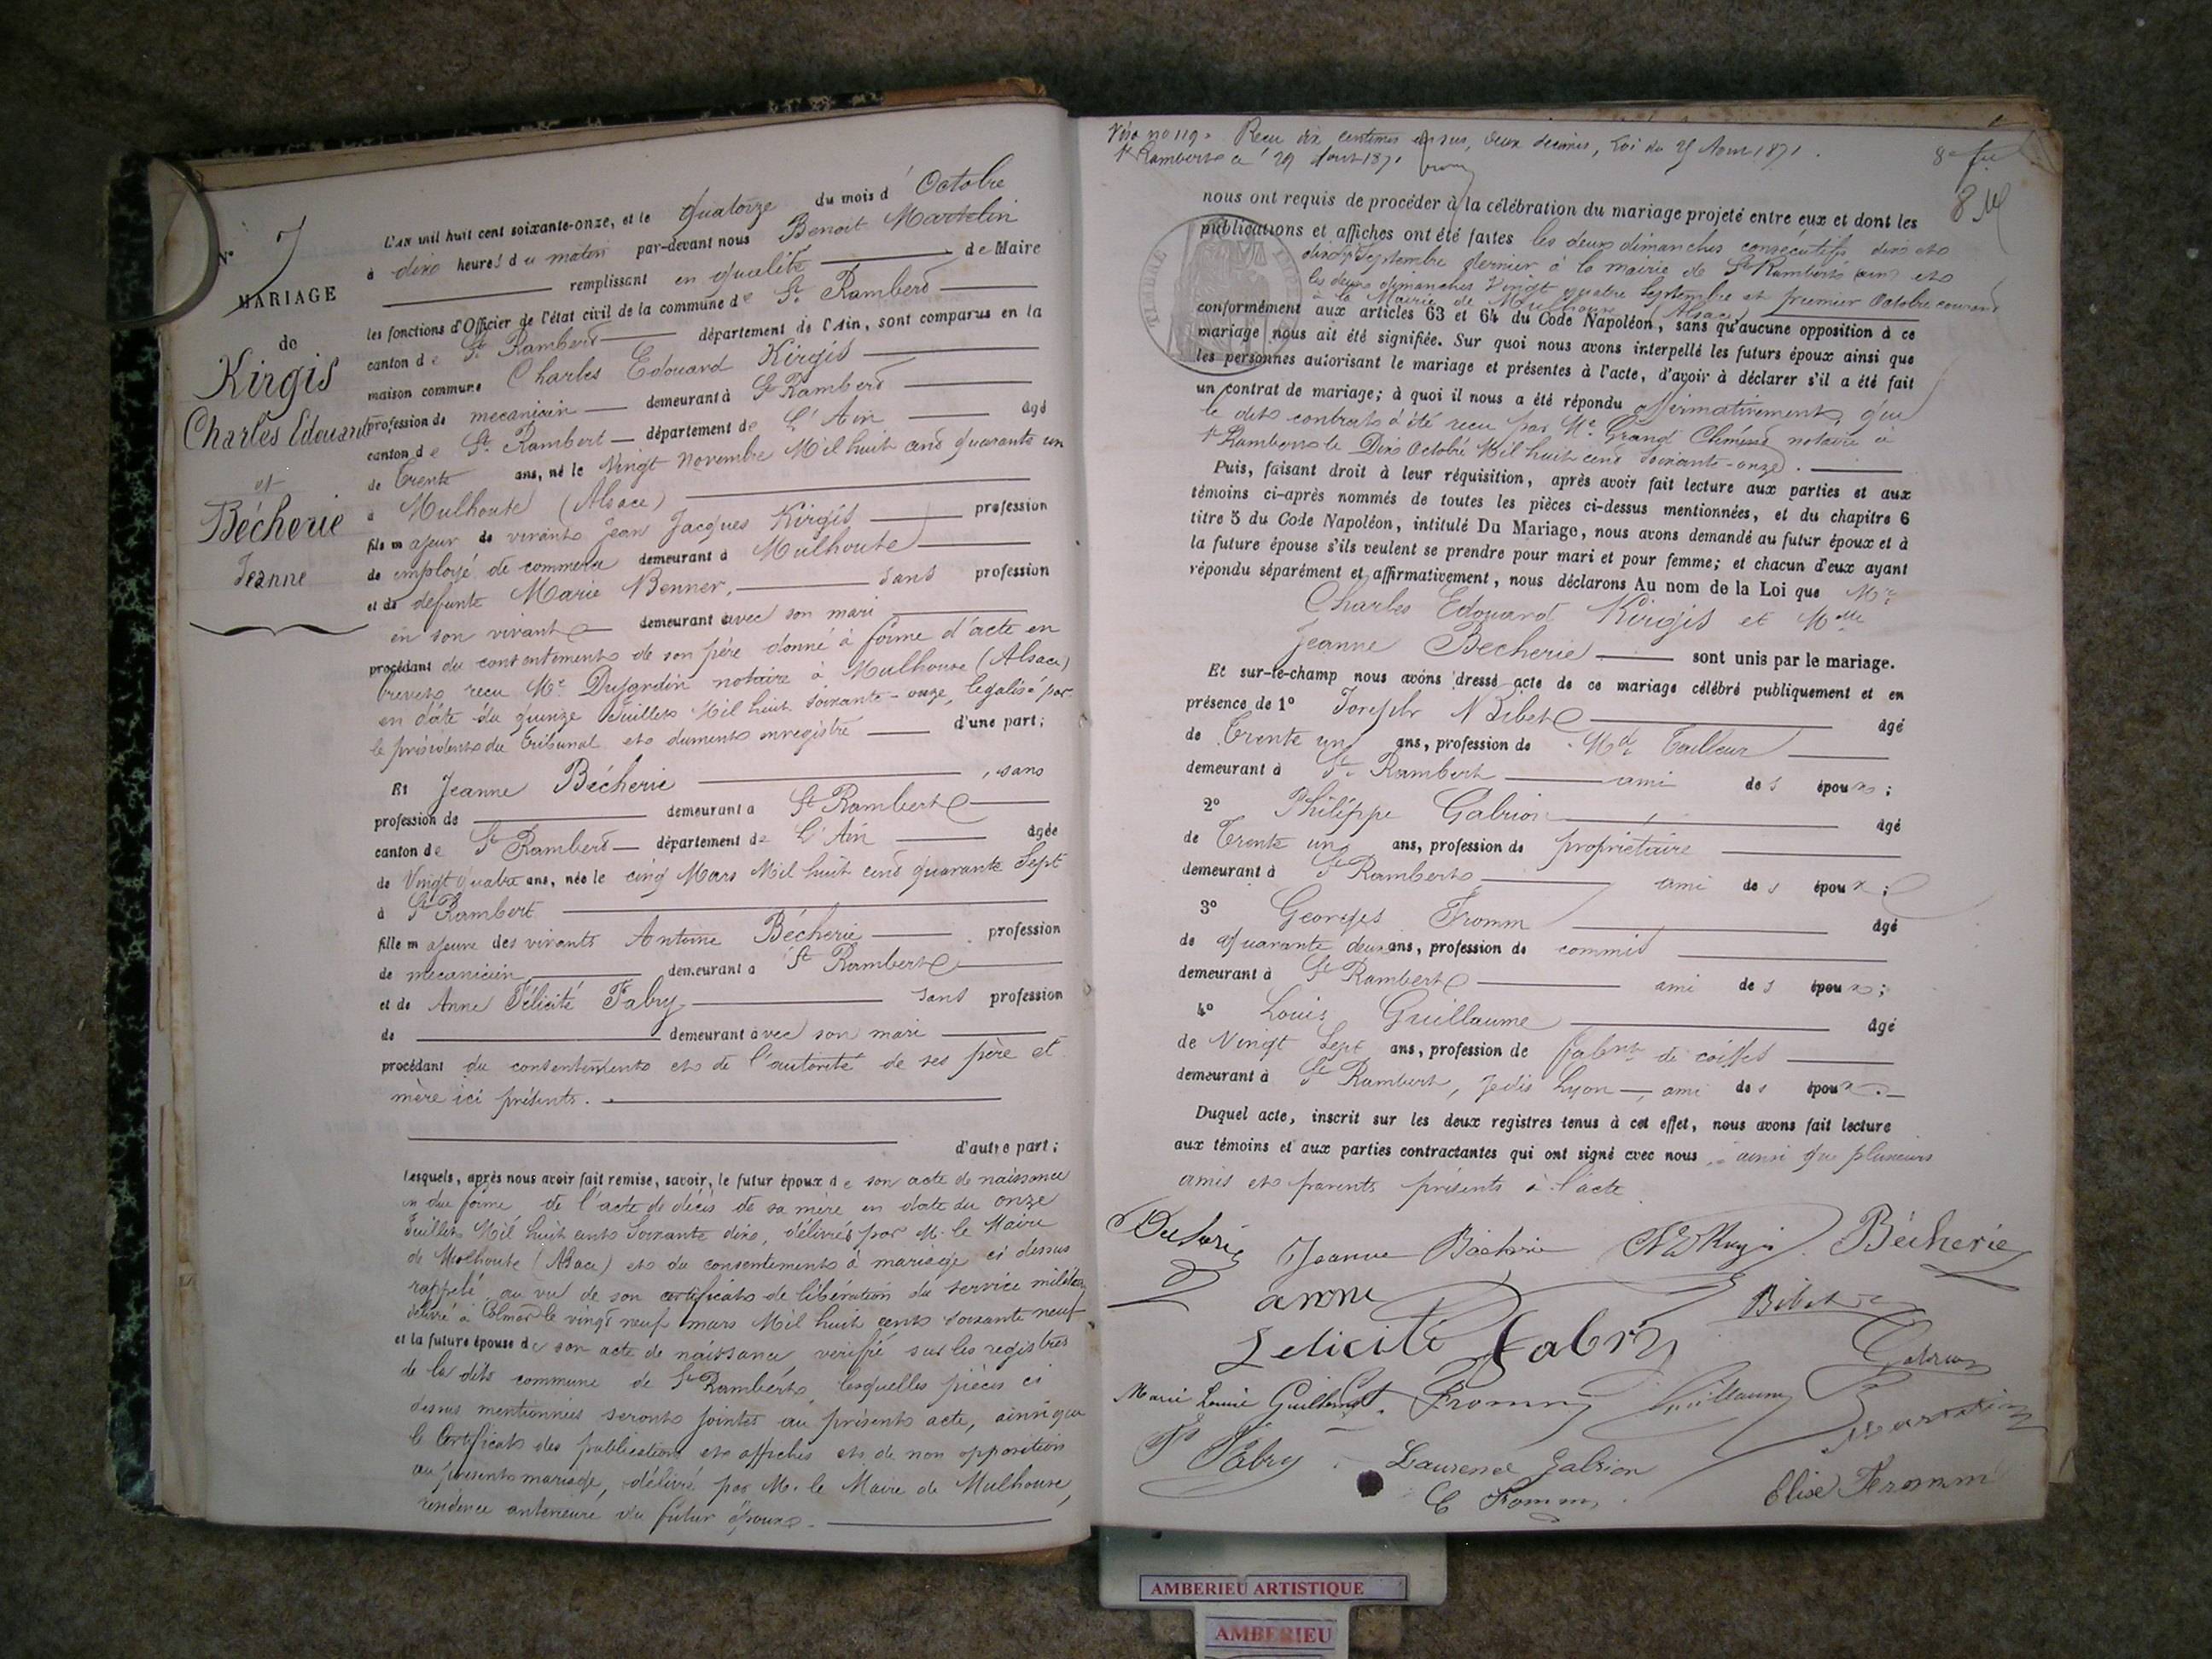 N° 7
MARIAGE
de
Kirgis
Charles Edouard
et
Bécherie
Jeanne
L'an mil huit cent soixante-onze, et le quatorze du mois d'Octobre
à dix heures du matin par-devant nous Benoit Martelin
remplissant en qualité de Maire
les fonctions d'Officier de l'état civil de la commune de St Rambert
canton de St Rambert département de l'Ain, sont comparus en la
maison commune Charles Edouard Kirgis
profession de mecanicien demeurant à St Rambert
canton de St Rambert département de L'Ain âgé
de Trente ans, né le Vingt Novembre Mil huit cent quarante un
à Mulhouse (Alsace)
fils majeur de vivant Jean Jacques Kirgis profession
de employé de commerce demeurant à Mulhouse
et de défunte Marie Benner, sans profession
en son vivant demeurant avec son mari
procédant du consentement de son père donné à forme d'acte en
brevet reçu Me Dujardin notaire à Mulhouse (Alsace)
en date du quinze Juillet Mil huit soixante-onze, légalisé par
le président du Tribunal et dument enregistré d'une part;
Et Jeanne Bécherie, sans
profession de demeurant à St Rambert
canton de St Rambert département de L'Ain âgée
de Vingt quatre ans, née le cinq Mars Mil huit cent quarante Sept
à St Rambert
fille majeure des vivants Antoine Bécherie profession
de mecanicien demeurant à St Rambert
et de Anne Félicité Fabry sans profession
de demeurant avec son mari
procédant du consentement et de l'autorité de ses père et
mère ici présents.
d'autre part;
Lesquels, après nous avoir fait remise, savoir, le futur époux de son acte de naissance
en due forme de l'acte de décès de sa mère en date du onze
Juillet Mil huit cent Soixante dix, délivrés par M. le Maire
de Mulhouse (Alsace) et du consentement à mariage ci dessus
rappelé au vu de son certificat de libération du service militaire
délivré à Colmar le vingt neuf mars Mil huit cent soixante neuf
et la future épouse de son acte de naissance vérifié sur les registres
de la dite commune de St Rambert, lesquelles pièces ci
dessus mentionnées seront jointes au présent acte, ainsi que
le Certificat des publications et affiches et de non opposition
au présent mariage, délivré par M. le Maire de Mulhouse,
résidence antérieure du futur époux.
Visé no 119. Reçu dix centimes en sus, deux décimes, Loi du 23 Aout 1871.
St Rambert ce 29 Aout 1871
8e fe
nous ont requis de procéder à la célébration du mariage projeté entre eux et dont les
publications et affiches ont été faites les deux dimanches consécutifs dix et
dix sept Septembre dernier à la mairie de St Rambert (ain) et
les deux dimanches Vingt quatre Septembre et premier Octobre courant
à la Mairie de Mulhouse (Alsace)
conformément aux articles 63 et 64 du Code Napoléon, sans qu'aucune opposition à ce
mariage nous ait été signifiée. Sur quoi nous avons interpellé les futurs époux ainsi que
les personnes autorisant le mariage et présentes à l'acte, d'avoir à déclarer s'il a été fait
un contrat de mariage; à quoi il nous a été répondu affirmativement, que
le dit contrat a été reçu par Me Grand Clément notaire à
St Rambert le Dix Octobre Mil huit cent Soixante-onze.
Puis, faisant droit à leur réquisition, après avoir fait lecture aux parties et aux
témoins ci-après nommés de toutes les pièces ci-dessus mentionnées, et du chapitre 6
titre 5 du Code Napoléon, intitulé Du Mariage, nous avons demandé au futur époux et à
la future épouse s'ils veulent se prendre pour mari et pour femme; et chacun d'eux ayant
répondu séparément et affirmativement, nous déclarons Au nom de la Loi que Mr
Charles Edouard Kirgis et Mlle
Jeanne Bécherie sont unis par le mariage.
Et sur-le-champ nous avons dressé acte de ce mariage célébré publiquement et en
présence de 1° Joseph Bibet âgé
de Trente un ans, profession de Md Tailleur
demeurant à St Rambert ami des époux;
2° Philippe Gabrion âgé
de Trente un ans, profession de propriétaire
demeurant à St Rambert ami des époux;
3° Georges Fromm âgé
de quarante deux ans, profession de commis
demeurant à St Rambert ami des époux;
4° Louis Guillaume âgé
de Vingt Sept ans, profession de fabnt de coiffes
demeurant à St Rambert, jadis Lyon, ami des époux.
Duquel acte, inscrit sur les deux registres tenus à cet effet, nous avons fait lecture
aux témoins et aux parties contractantes qui ont signé avec nous, ainsi que plusieurs
amis et parents présents à l'acte
Jeanne Bécherie Bécherie
anne Bibet
Felicité Fabry Gabrion
Marie Louise Fromm Guillaume Martelin
Fabry Laurence Gabrion
C Fromm Elise Fromm
AMBERIEU ARTISTIQUE
AMBERIEU